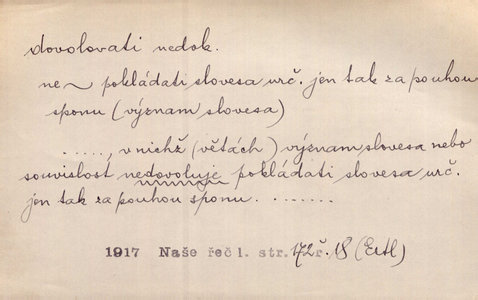 dovolovati nedok.
ne ~ pokládati slovesa urč. jen tak za pouhou
sponu (význam slovesa)
....., v nichž (větách) význam slovesa nebo
souvislost nedovoluje pokládati slovesa urč.
jen tak za pouhou sponu. .......
1917 Naše řeč 1. str. 172 ř. 18 (Ertl)